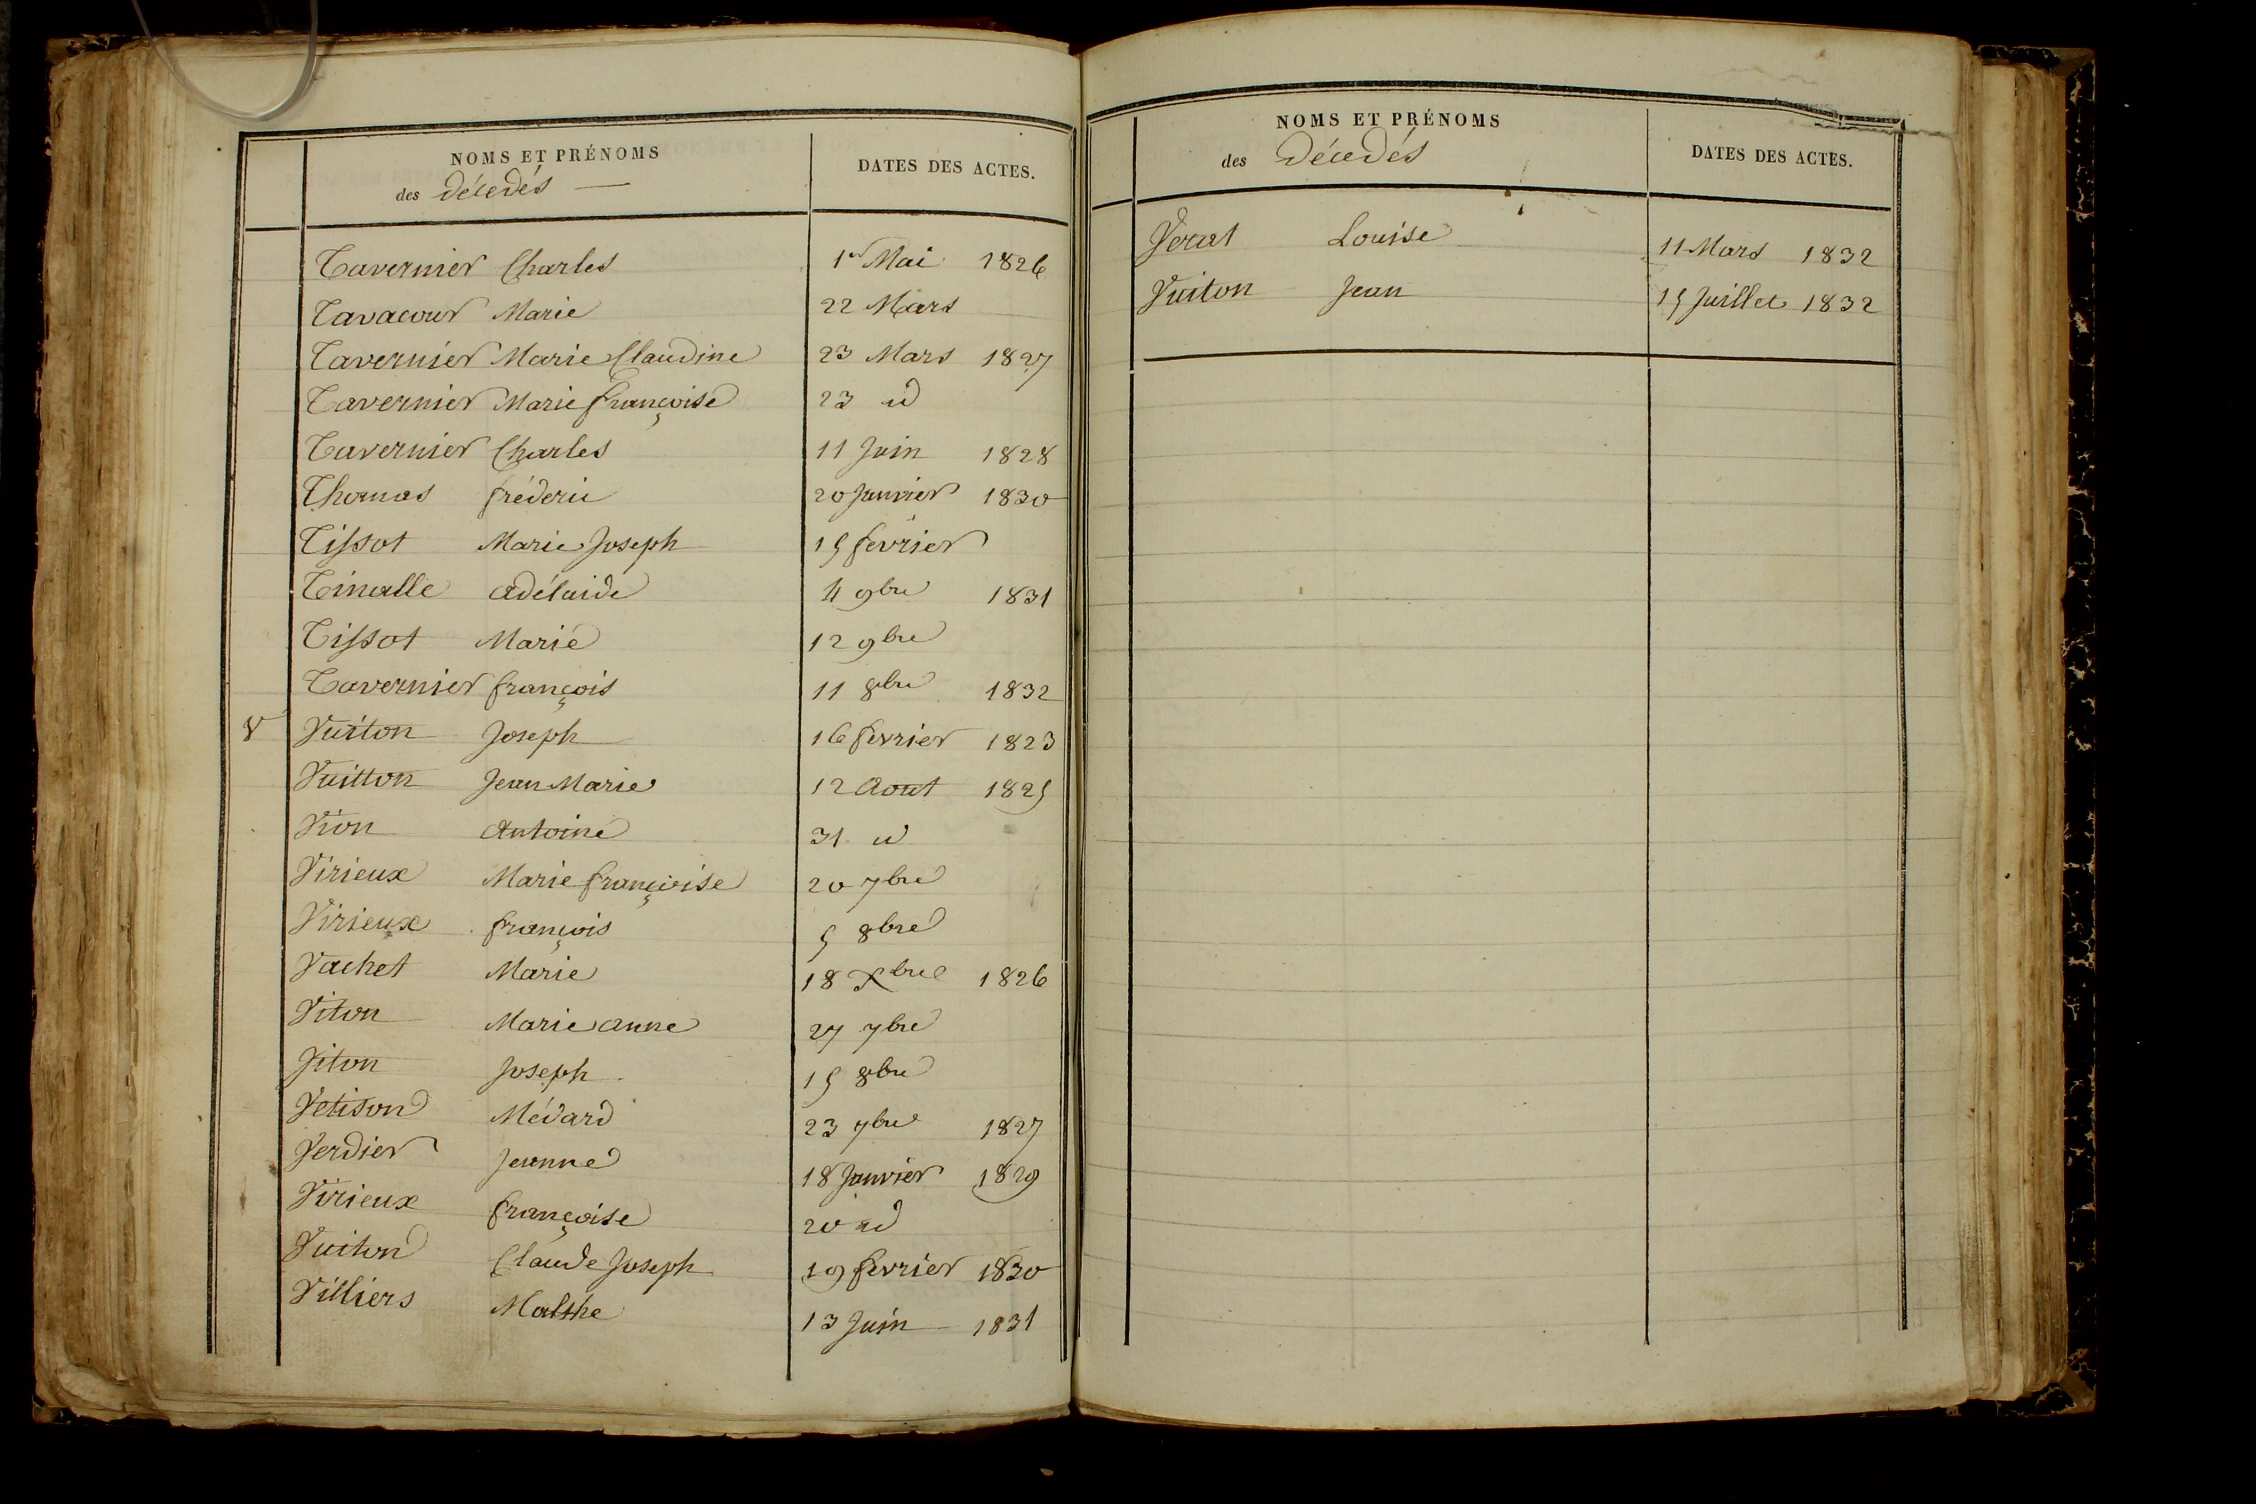 NOMS ET PRÉNOMS DATES DES ACTES.
des Décédés
Tavernier Charles 1er Mai 1826
Tavacour Marie 22 Mars
Tavernier Marie Claudine 23 Mars 1827
Tavernier Marie françoise 23 id
Tavernier Charles 11 Juin 1828
Thomas fréderic 20 Janvier 1830
Tissot Marie Joseph 15 fevrier
Tinalle adélaide 4 9bre 1831
Tissot Marie 12 9bre
Tavernier françois 11 8bre 1832
V Vuiton Joseph 16 fevrier 1823
Vuitton Jean Marie 12 Aout 1825
Vion Antoine 31 id
Virieux Marie françoise 20 7bre
Virieux françois 5 8bre
Vachet Marie 18 Xbre 1826
Viton Marie anne 27 7bre
Viton Joseph 15 8bre
Vetison Médard 23 7bre 1827
Verdier Jeanne 18 Janvier 1829
Virieux françoise 20 id
Vuiton Claude Joseph 19 fevrier 1830
Villiers Malthe 13 Juin 1831
NOMS ET PRÉNOMS DATES DES ACTES.
des Décedés
Verat Louise 11 Mars 1832
Vuiton Jean 15 Juillet 1832